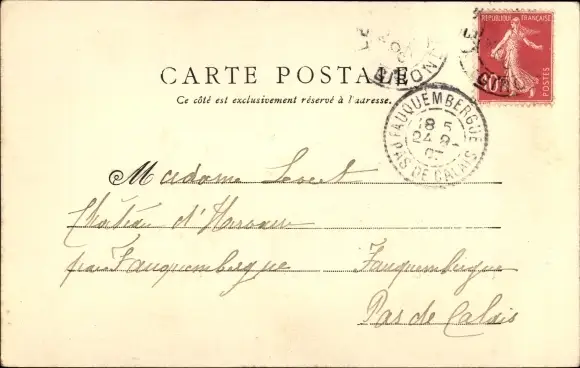 RÉPUBLIQUE FRANÇAISE
POSTES
GIRONDE
CARTE POSTALE
Ce côté est exclusivement réservé à l'adresse.
FAUQUEMBERGUE
18 5
24 8-
07
PAS DE CALAIS
Madame
Château d'
par Fauquembergue Fauquembergue
Pas de Calais